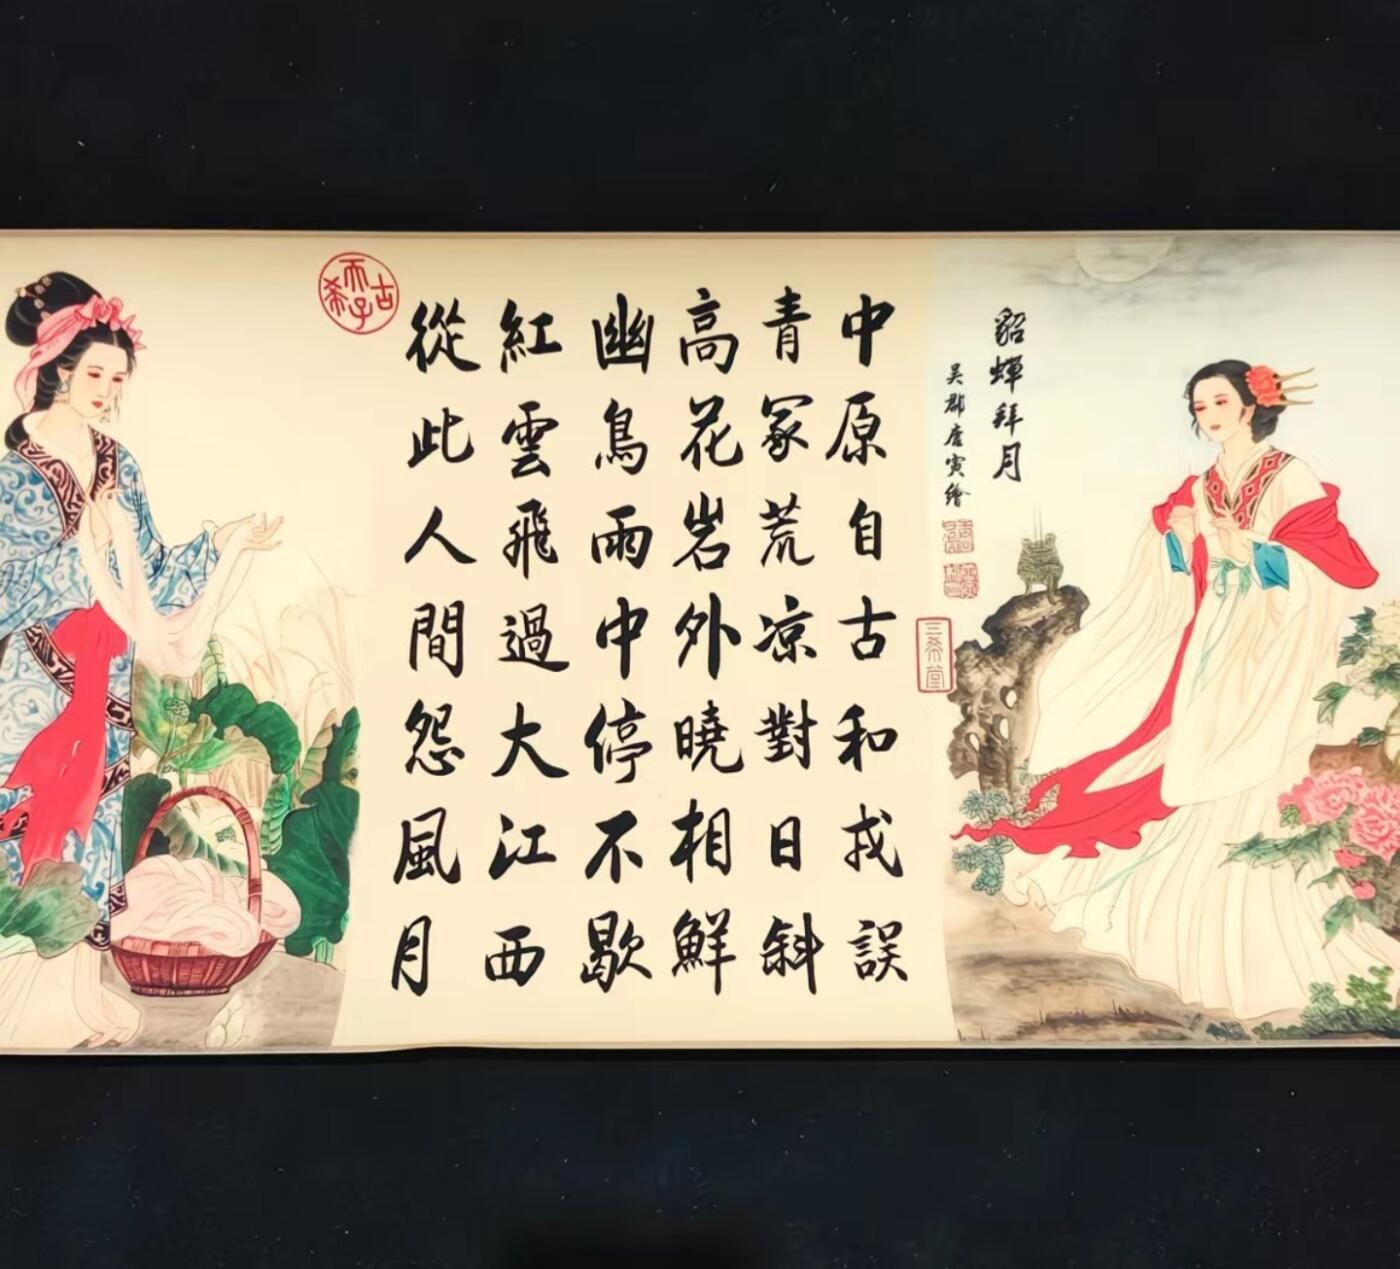 貂蟬拜月
吳郡唐寅繪
三希堂
中原自古和戎誤
青冢荒凉對日斜
高花岩外曉相鮮
幽鳥雨中停不歇
紅雲飛過大江西
從此人間怨風月
古希天子